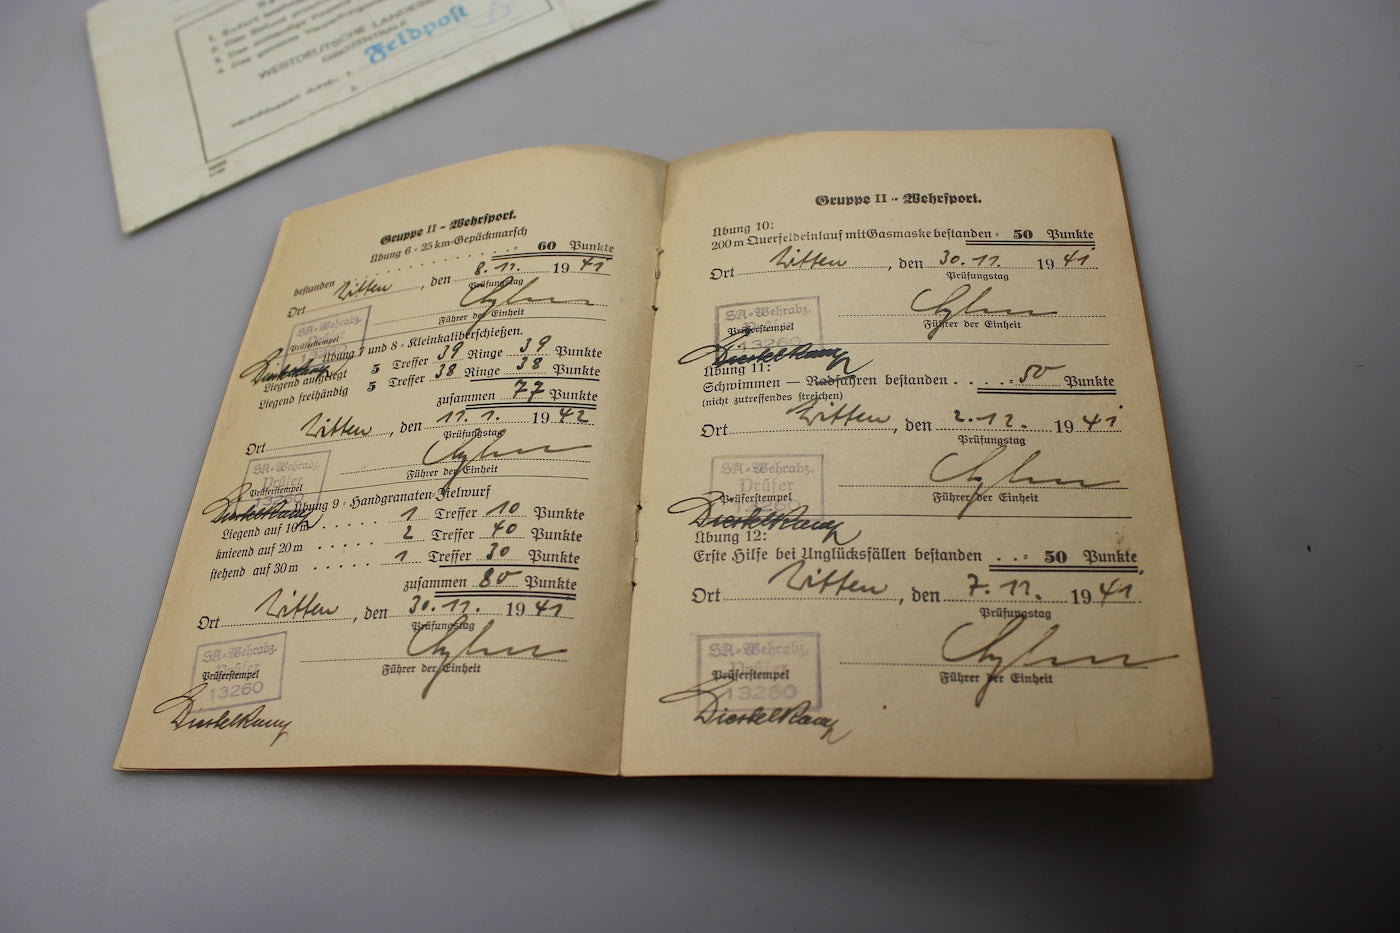 WESTDEUTSCHE LANDES
GIROZENTRALE
Feldpost
verschlossen durch: 1.
2.
Gruppe II - Wehrsport.
Übung 6 - 25 km-Gepäckmarsch
bestanden . . . . . . . = 60 Punkte
Ort Witten, den 8.11. 1941
Prüfungstag
Führer der Einheit
SA-Wehrabz.
Prüfer
Prüferstempel
13260
Diestelkamp
Übung 7 und 8 - Kleinkaliberschießen.
Liegend aufgelegt 5 Treffer 39 Ringe 39 Punkte
Liegend freihändig 5 Treffer 38 Ringe 38 Punkte
zusammen 77 Punkte
Ort Witten, den 11.1. 1942
Prüfungstag
Führer der Einheit
SA-Wehrabz.
Prüfer
Prüferstempel
13260
Diestelkamp
Übung 9 - Handgranaten-Zielwurf
Liegend auf 10 m . . . . . 1 Treffer 10 Punkte
knieend auf 20 m . . . . . 2 Treffer 40 Punkte
stehend auf 30 m . . . . . 1 Treffer 30 Punkte
zusammen 80 Punkte
Ort Witten, den 30.11. 1941
Prüfungstag
Führer der Einheit
SA-Wehrabz.
Prüfer
Prüferstempel
13260
Diestelkamp
Gruppe II - Wehrsport.
Übung 10:
200 m Querfeldeinlauf mit Gasmaske bestanden = 50 Punkte
Ort Witten, den 30.11. 1941
Prüfungstag
Führer der Einheit
SA-Wehrabz.
Prüfer
Prüferstempel
13260
Diestelkamp
Übung 11:
Schwimmen — Radfahren bestanden . . . . = 50 Punkte
(nicht zutreffendes streichen)
Ort Witten, den 2.12. 1941
Prüfungstag
Führer der Einheit
SA-Wehrabz.
Prüfer
Prüferstempel
13260
Diestelkamp
Übung 12:
Erste Hilfe bei Unglücksfällen bestanden . . = 50 Punkte
Ort Witten, den 7.12. 1941
Prüfungstag
Führer der Einheit
SA-Wehrabz.
Prüfer
Prüferstempel
13260
Diestelkamp